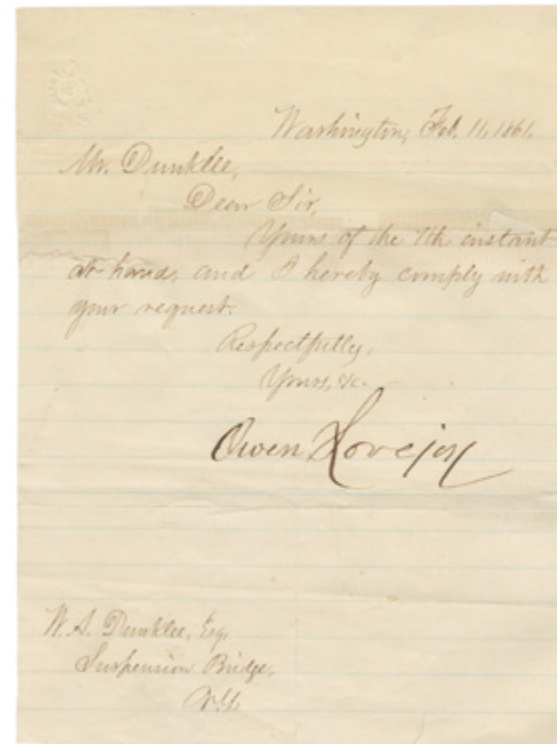 Washington, Feb. 11, 1861.
Mr. Dunklee,
Dear Sir,
Yours of the 7th instant
at hand, and I hereby comply with
your request.
Respectfully,
Yours, &c.
Owen Lovejoy
W. S. Dunklee, Esq.
Suspension Bridge,
N.Y.